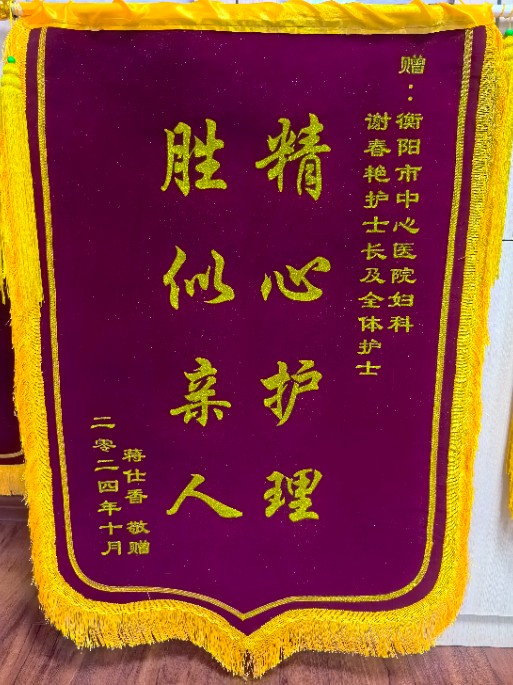 赠：衡阳市中心医院妇科
谢春艳护士长及全体护士
精心护理
胜似亲人
蒋仕香 敬赠
二零二四年十月